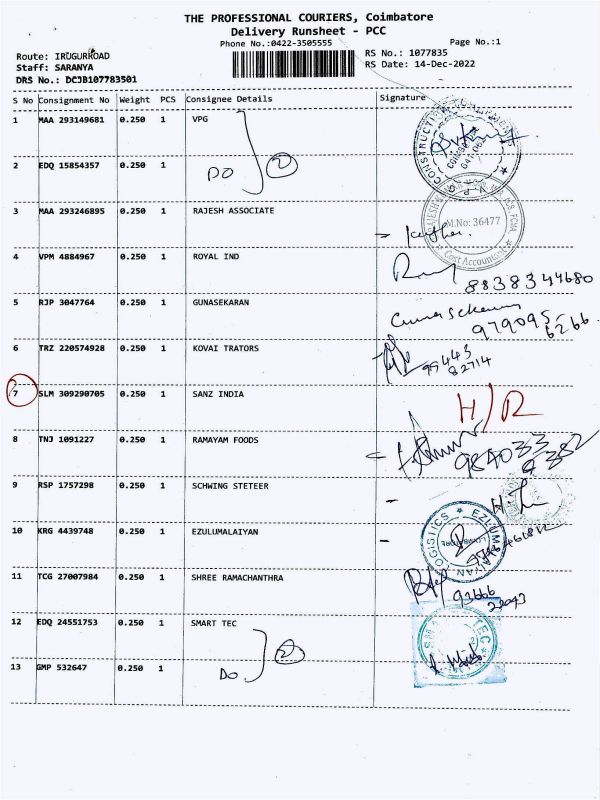 THE PROFESSIONAL COURIERS, Coimbatore
Delivery Runsheet - PCC
Phone No.:0422-3505555
Page No.:1
Route: IRUGURROAD
Staff: SARANYA
DRS No.: DCJB107783501
RS No.: 1077835
RS Date: 14-Dec-2022
S No Consignment No Weight PCS Consignee Details Signature
1 MAA 293149681 0.250 1 VPG
2 EDQ 15854357 0.250 1 DO 2
3 MAA 293246895 0.250 1 RAJESH ASSOCIATE
M.No: 36477
Cost Accountant
4 VPM 4884967 0.250 1 ROYAL IND
8838344680
5 RJP 3047764 0.250 1 GUNASEKARAN
Gunasekaran
979095
6266
6 TRZ 220574928 0.250 1 KOVAI TRATORS
99443
82714
7 SLM 309290705 0.250 1 SANZ INDIA H/R
8 TNJ 1091227 0.250 1 RAMAYAM FOODS
984033
9 RSP 1757298 0.250 1 SCHWING STETEER
10 KRG 4439748 0.250 1 EZULUMALAIYAN
LOGISTICS * EZLUMALAIYAN
11 TCG 27007984 0.250 1 SHREE RAMACHANTHRA
93666
12 EDQ 24551753 0.250 1 SMART TEC
13 GMP 532647 0.250 1 DO 2